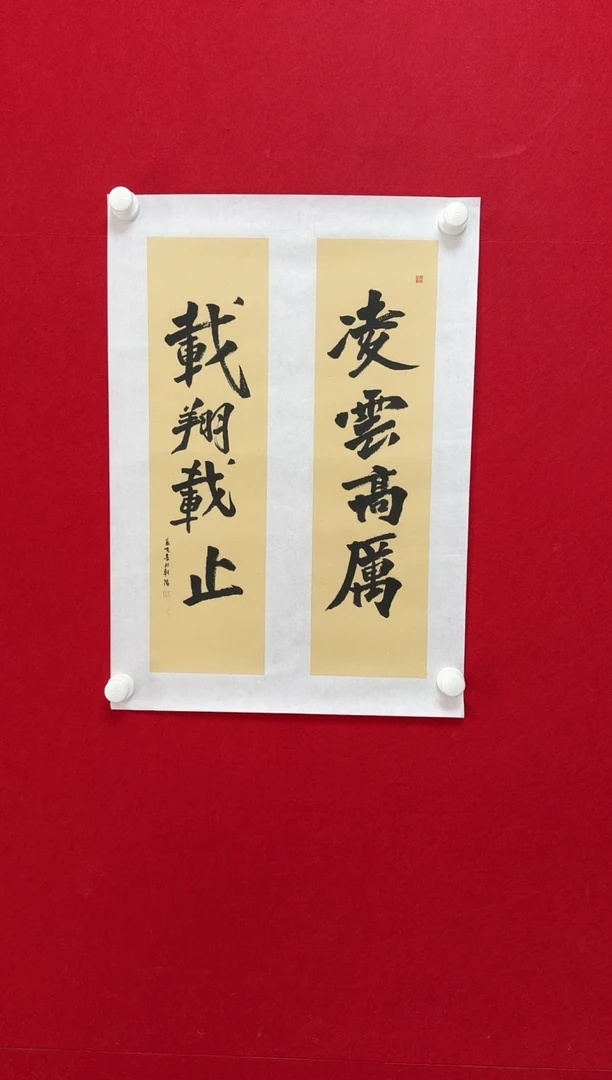 凌雲高厲
載翔載止